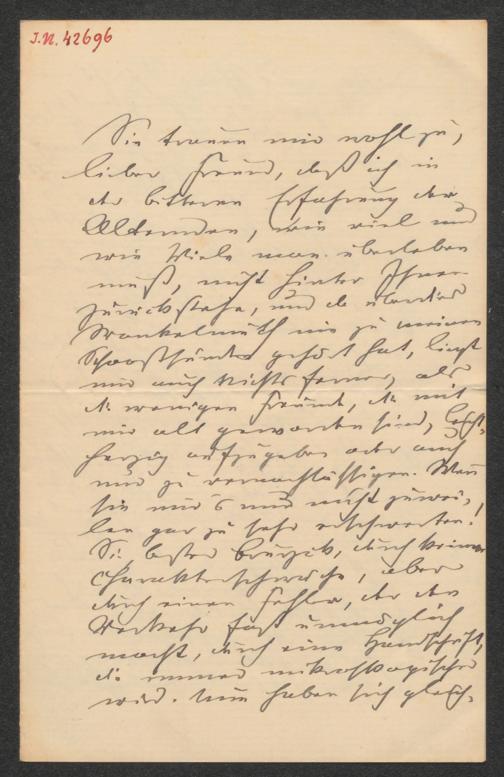 I.N. 42696
Sie trauen mir wohl zu,
lieber Freund, daß ich in
der bitteren Erfahrung der
Alternden, wie viel und
wie Viele man überleben
muß, nicht hinter Ihnen
zurückstehe, und da überdies
Wankelmuth nie zu meinen
Schoosssünden gehört hat, liegt
mir auch Nichts ferner, als
die wenigen Freunde, die mit
mir alt geworden sind, leicht-
herzig aufzugeben oder auch
nur zu vernachlässigen. Wenn
sie mir's nur nicht zuwei-
len gar zu sehr erschwerten!
Sie bester, durch keine
Charakterschwäche, aber
durch einen Fehler, der den
Verkehr fast unmöglich
macht, durch eine Handschrift,
die immer mikroskopischer
wird. Nun haben sich gleich-